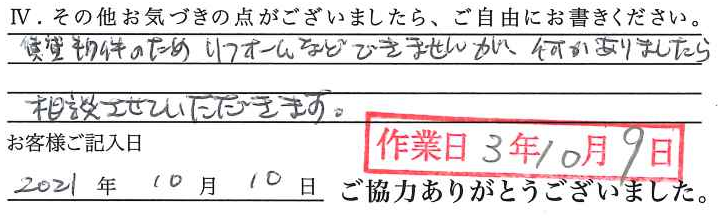 Ⅳ.その他お気づきの点がございましたら、ご自由にお書きください。
賃貸物件のため リフォームなど できませんが、何かありましたら
相談させていただきます。
お客様ご記入日
作業日 3年10月9日
2021 年 10 月 10 日 ご協力ありがとうございました。